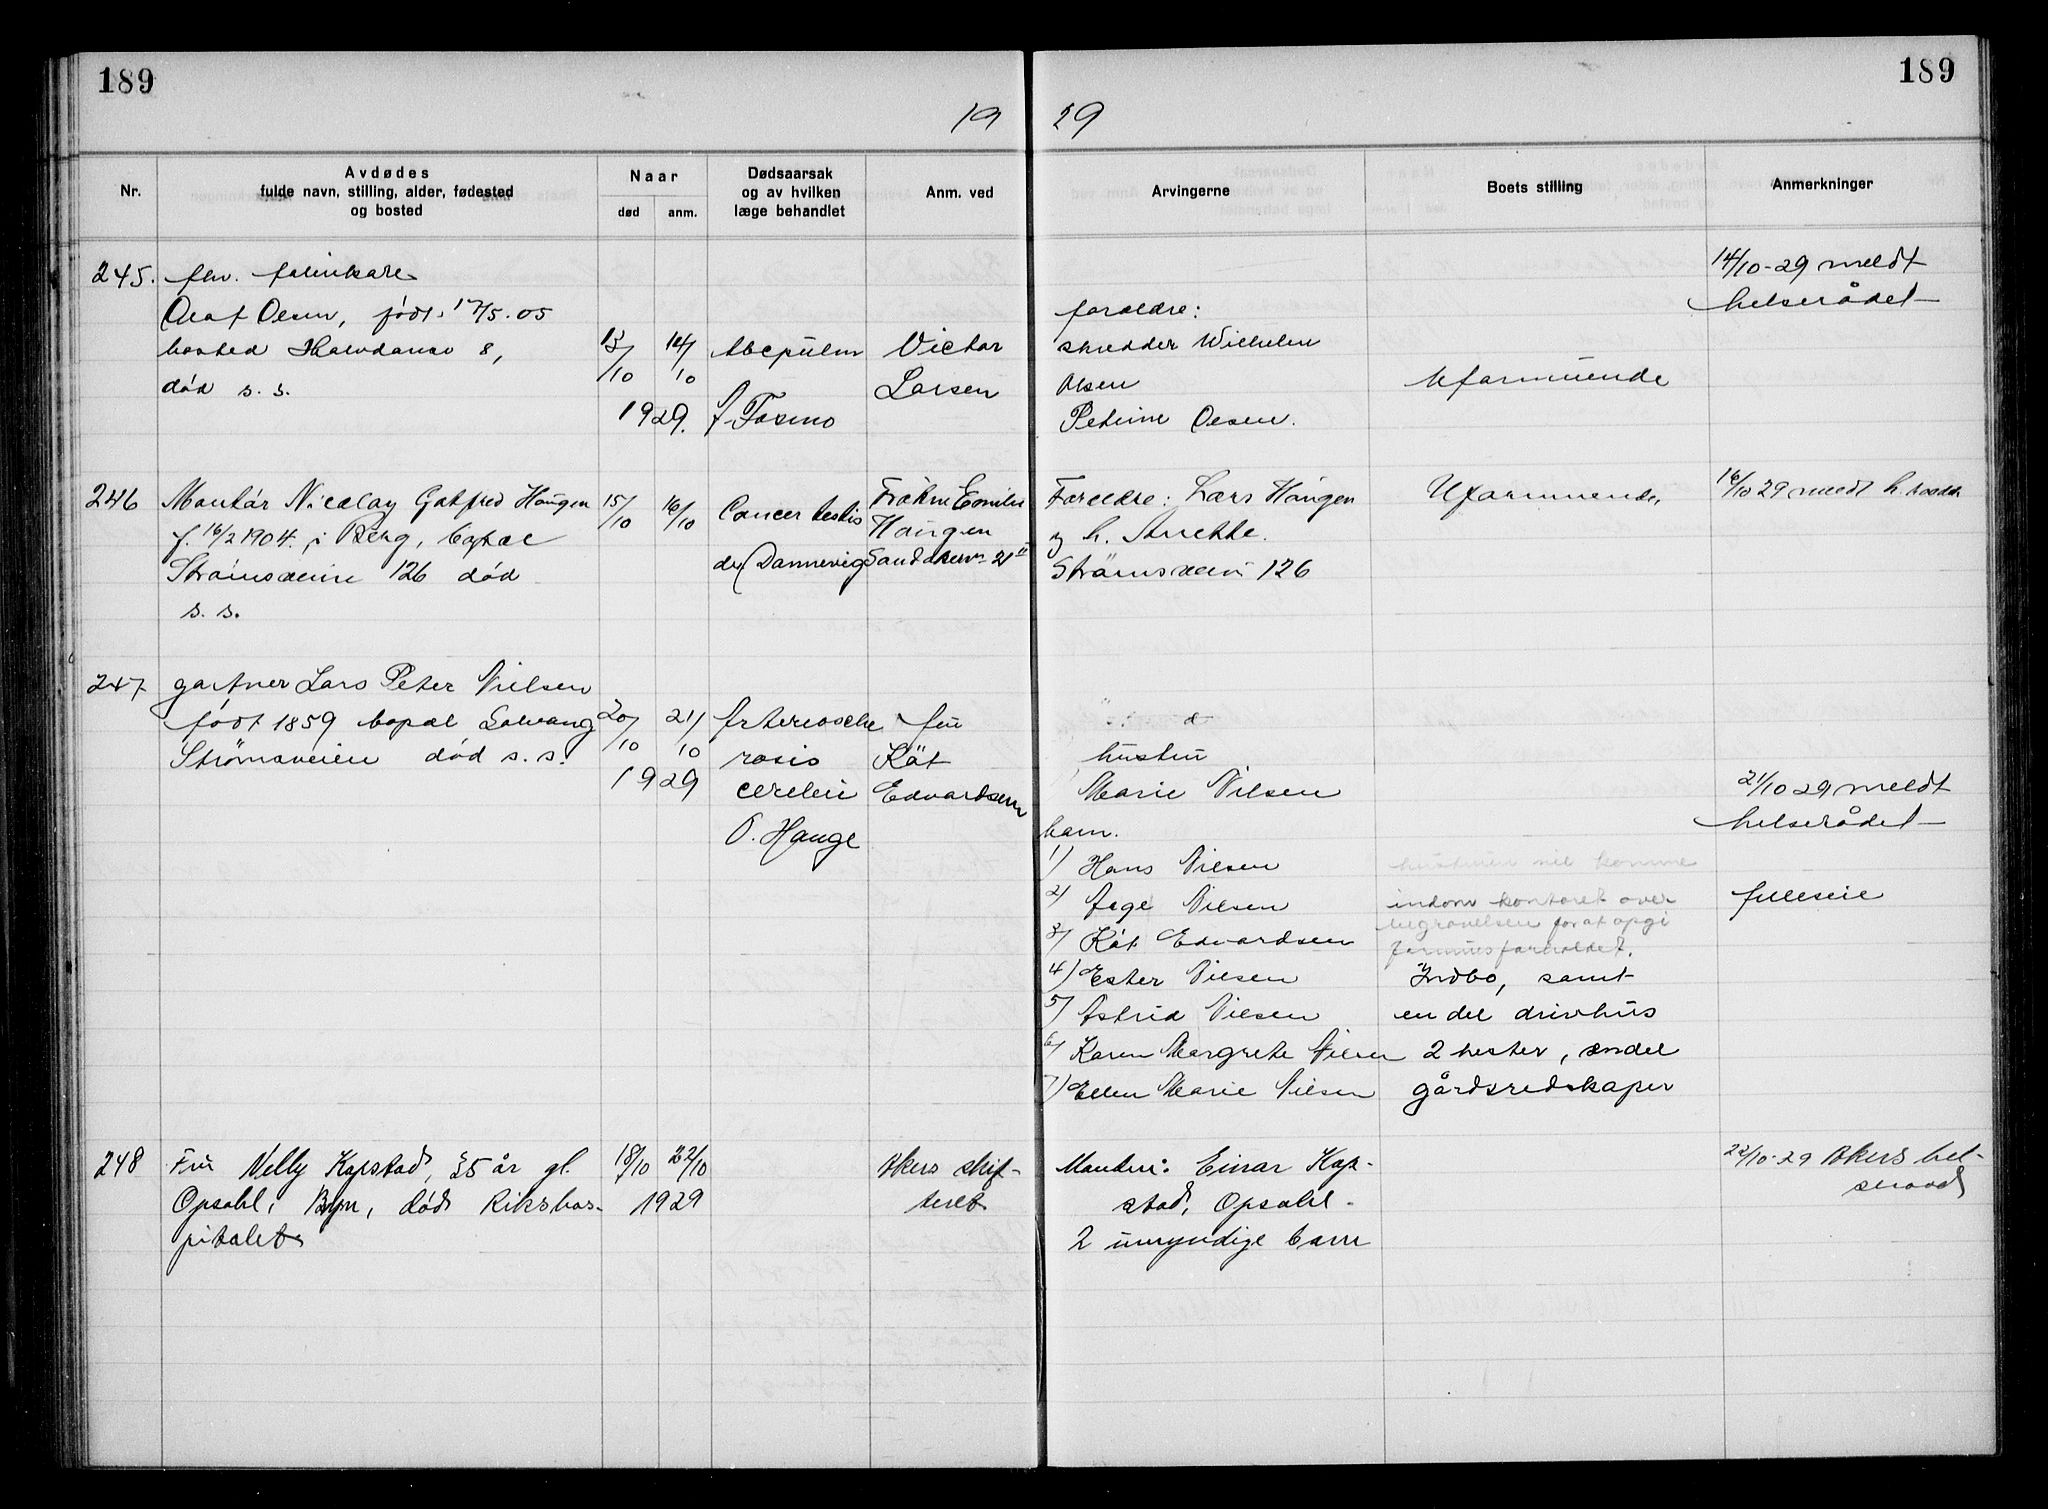 189
189
19 29
Nr.
Avdødes
fulde navn, stilling, alder, fødested
og bosted
Naar
død
anm.
Dødsaarsak
og av hvilken
læge behandlet
Anm. ved
Arvingerne
Boets stilling
Anmerkninger
245.
fhv.
Olaf Olsen, født 17/5.05
bosted 8,
død s. s.
13/10
14/10
1929.
Victor
Larsen
foreldre:
skredder Wilhelm
Olsen
Petrine Olsen.
Uformuende
14/10-29 meldt
helserådet
246
Montør Nicolay Gotfred Haugen
f. 16/2 1904. i Berg, bopæl
Strømsveien 126 død
s. s.
15/10
16/10
Cancer testis
dr Dannevig
Frøken Emilie
Haugen
Foreldre: Lars Haugen
og h. Anette.
Strømsveien 126
Uformuende,
16/10 29 meldt h.
247
gartner Lars Peter Nielsen
født 1859 bopæl Solvang
Strømsveien død s. s.
20/10
21/10
1929
Arteriosche
rosis
cerebri
O. Hauge
fru
Kät
Edvardsen
hustru
Marie Nilsen
barn.
1) Hans Nilsen
2) Aage Nilsen
3) Kät Edvardsen
4) Ester Nilsen
5) Astrid Nilsen
6) Karen Margrete Nilsen
7) Ellen Marie Nilsen
hustruen vil komme
indom kontoret over
begravelsen for at opgi
formuesforholdet.
Indbo, samt
en del drivhus
2 hester, endel
gårdsredskaper
21/10 29 meldt
helserådet
felleseie
248
Fru Nelly Kopstad, 35 år gl.
Opsahl, Bryn, død Rikshos-
pitalet
18/10
22/10
1929
Akers skif-
teret
Manden: Einar Kop-
stad, Opsahl -
2 umyndige barn
22/10-29 Akers hel-
seraad